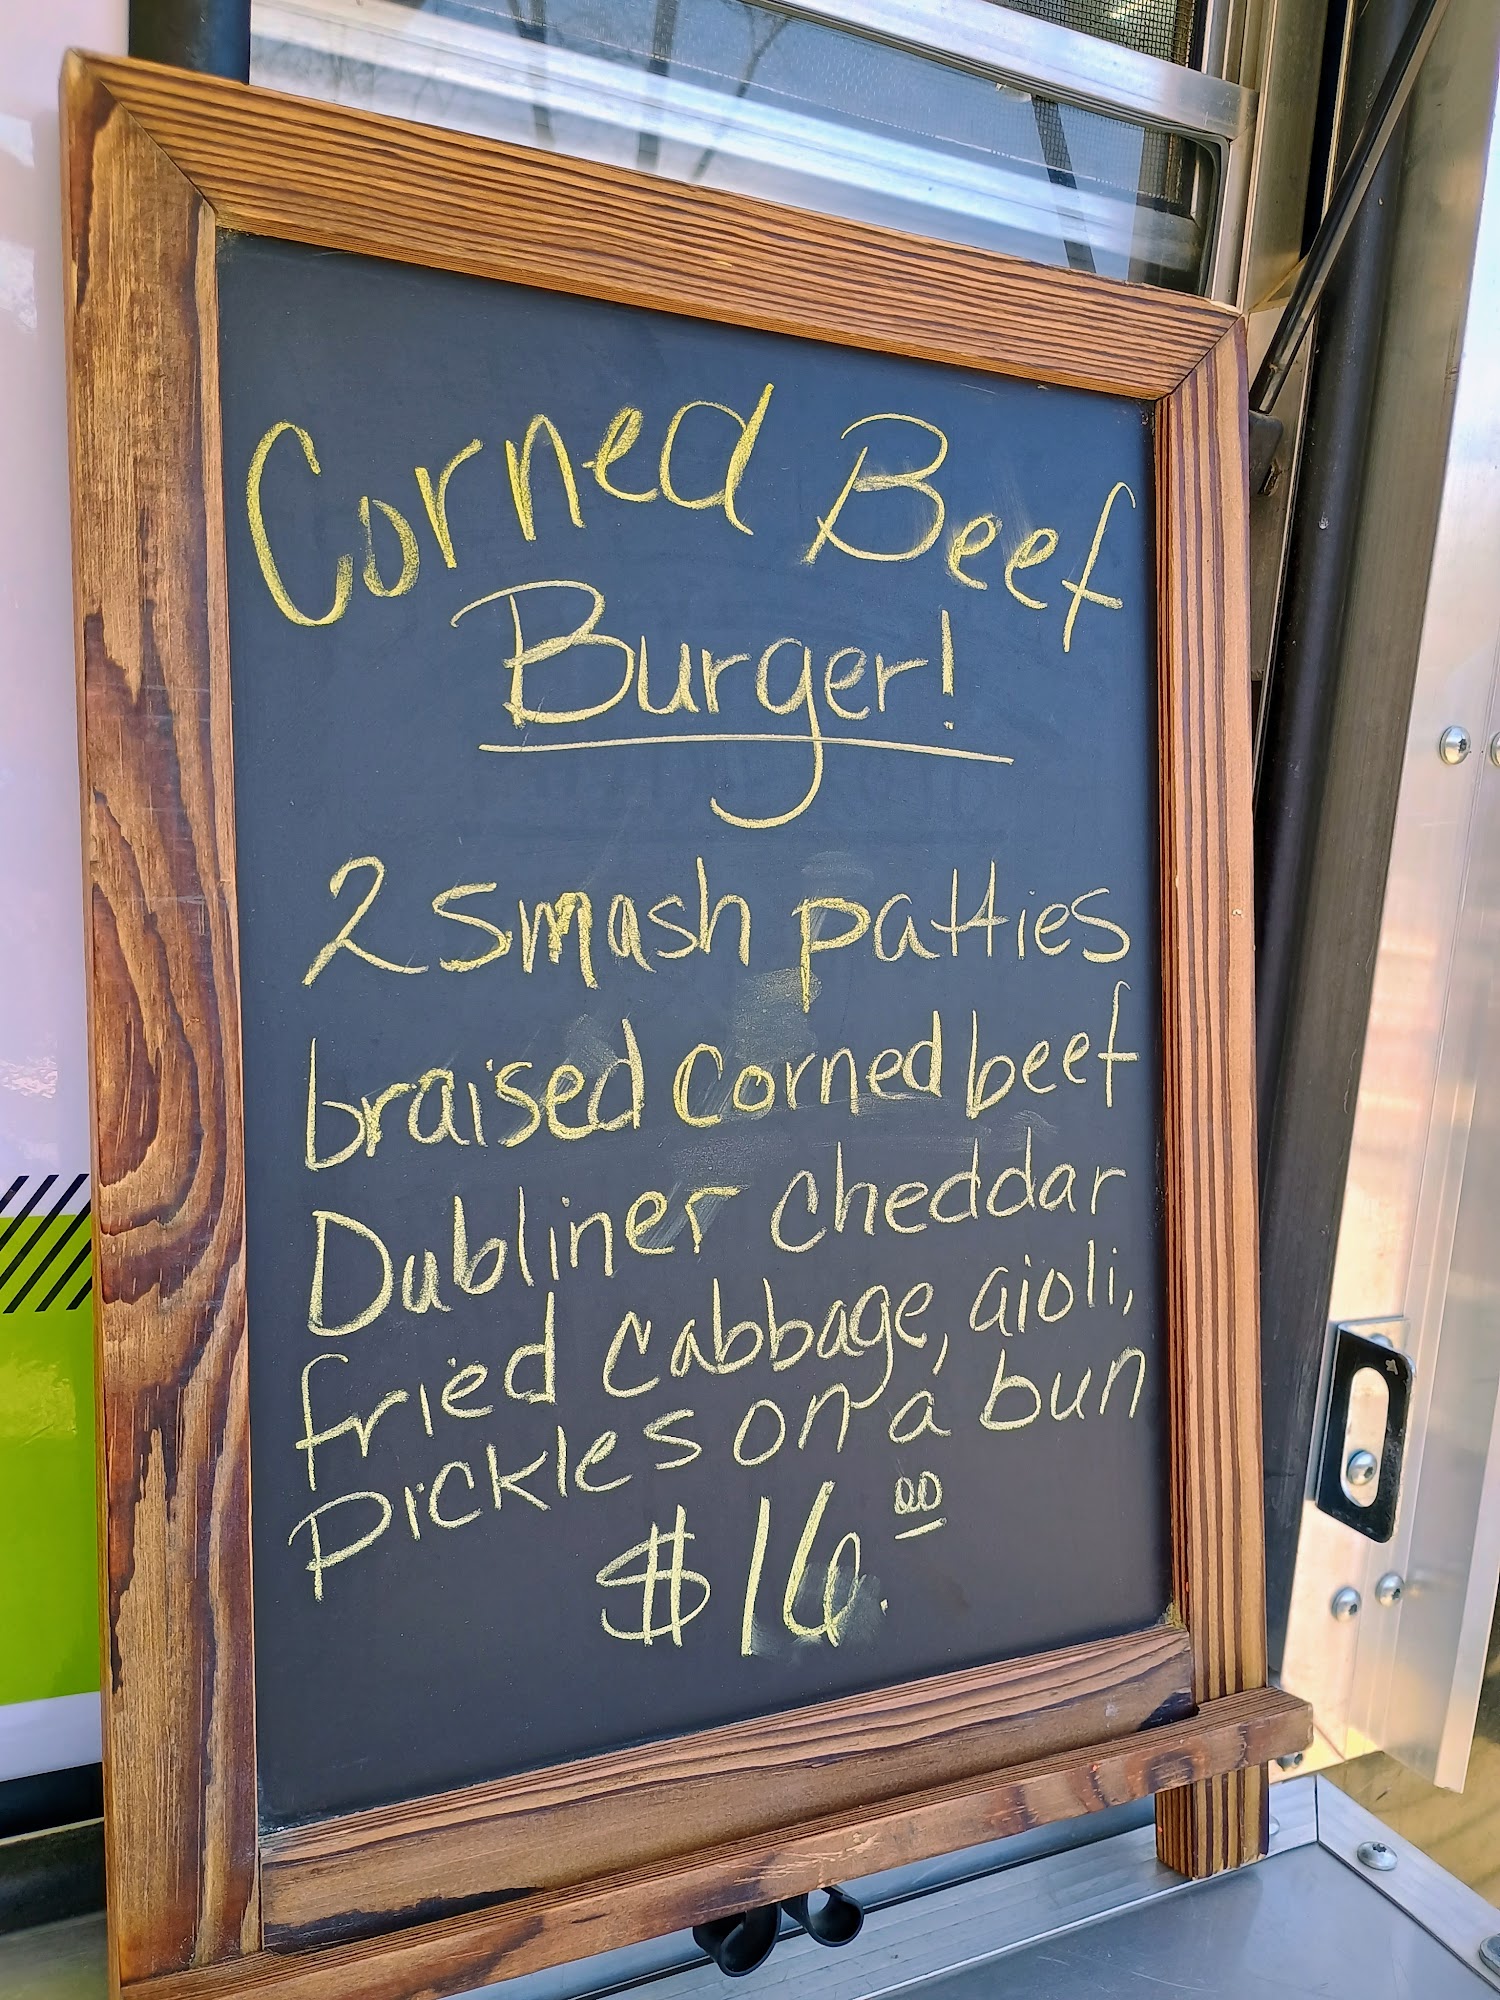 Corned Beef
Burger!
2 smash patties
braised corned beef
Dubliner cheddar
fried cabbage, aioli,
pickles on a bun
$16.00